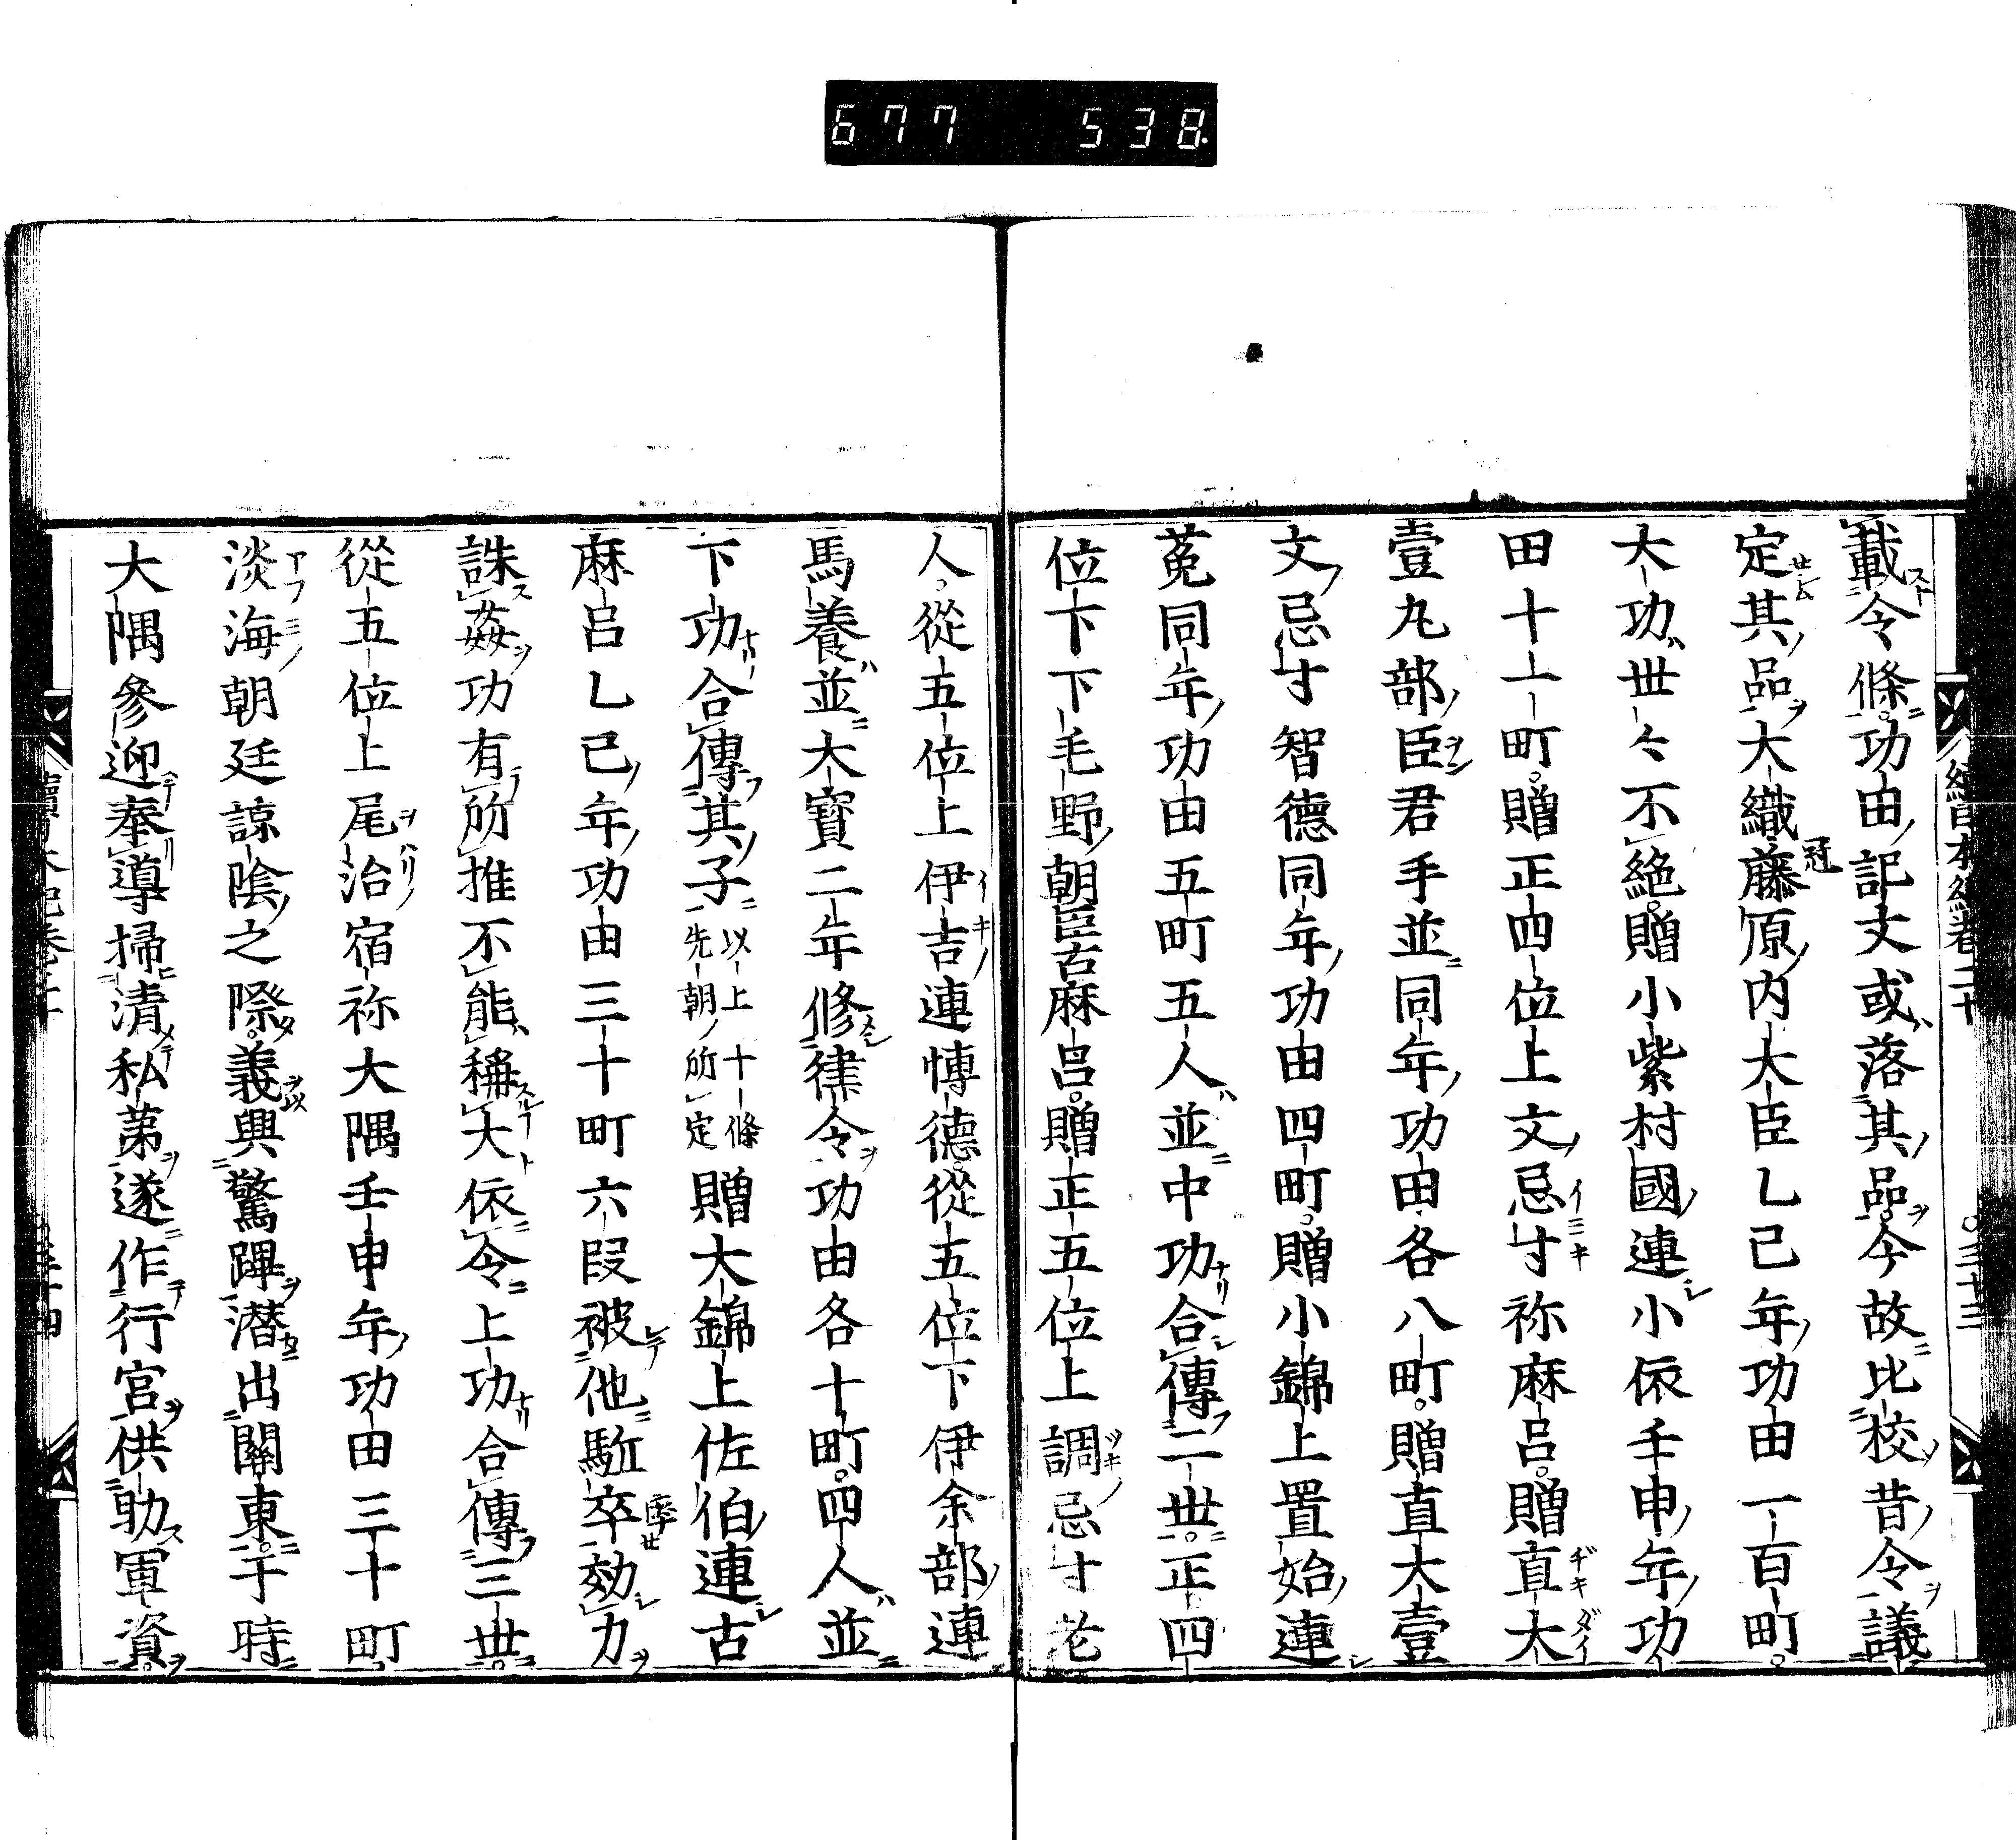 677 538
續日本紀卷二十 〇三十三
載令條功田記文或落其品今故比校昔令議
定其品大織藤原内大臣乙巳年功田一百町
大功世々不絶贈小紫村國連小依壬申年功
田十一町贈正四位上文忌寸祢麻呂贈直大
壹丸部臣君手並同年功田各八町贈直大壹
文忌寸智德同年功田四町贈小錦上置始連
菟同年功田五町五人並中功合傳二世正四
位下下毛野朝臣古麻呂贈正五位上調忌寸老
人從五位上伊吉連博德從五位下伊余部連
馬養並大寳二年修律令功田各十町四人並
下功合傳其子以上十條先朝所定贈大錦上佐伯連古
麻呂乙巳年功田三十町六段被他駈卒効力
誅姦功有所推不能稱大依令上功合傳三世
從五位上尾治宿祢大隅壬申年功田三十町
淡海朝廷諒陰之際義興驚蹕潜出關東于時
大隅參迎奉導掃清私第遂作行宮供助軍資